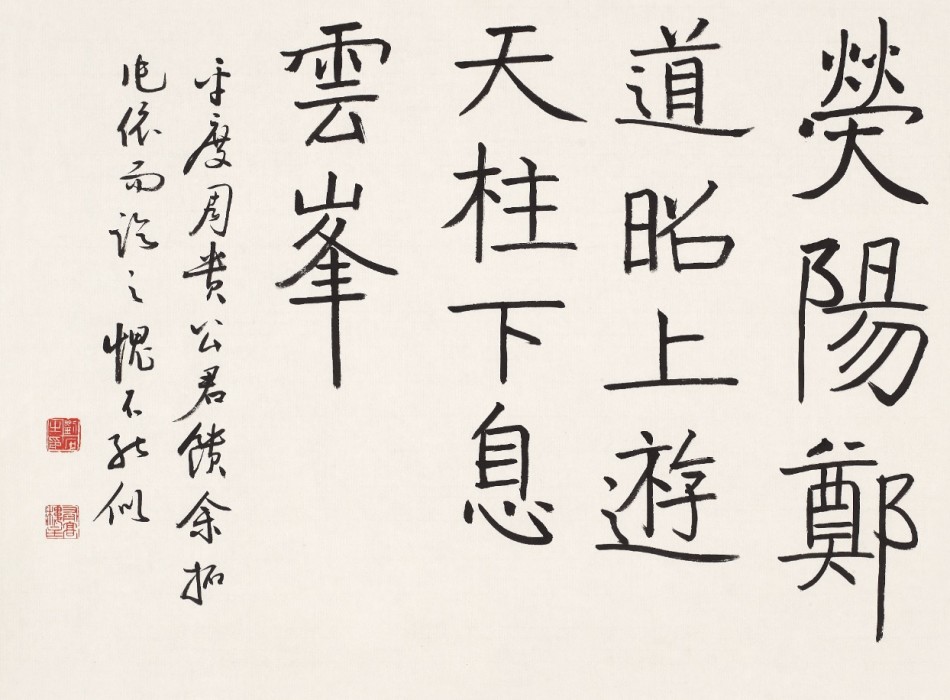 熒陽鄭
道昭上遊
天柱下息
雲峯
平度周貴公君饋余拓
依而臨之愧不能似